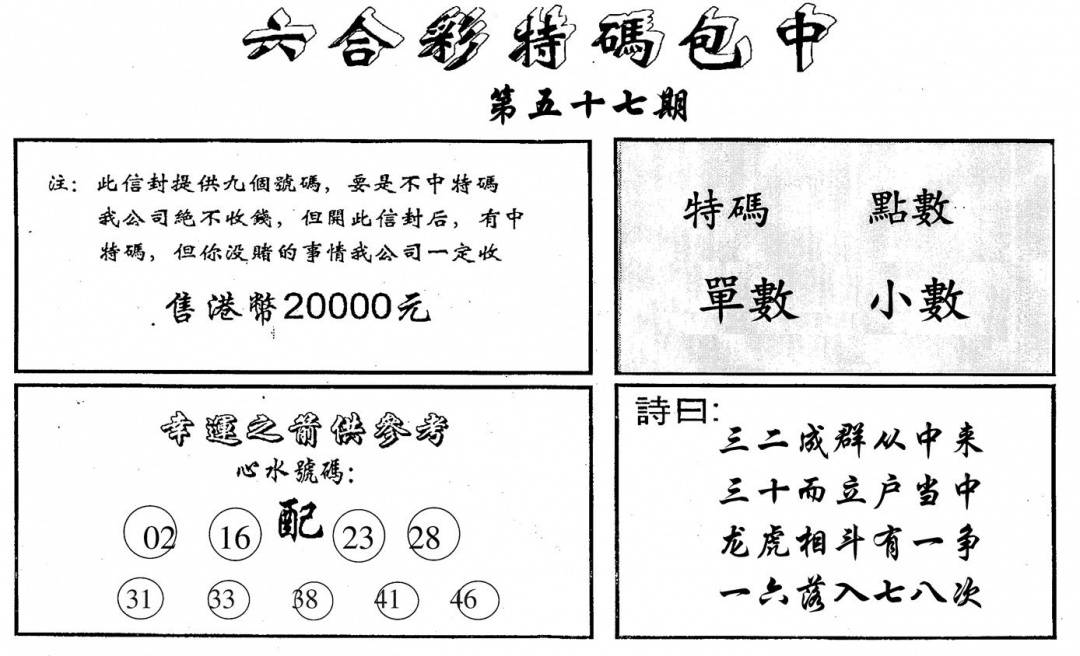 六合彩特碼包中
第五十七期
注：此信封提供九個號碼，要是不中特碼
我公司絕不收錢，但開此信封后，有中
特碼，但你没賭的事情我公司一定收
售港幣20000元
特碼 點數
單數 小數
幸運之箭供參考
心水號碼：
配
02 16 23 28
31 33 38 41 46
詩曰：
三二成群从中来
三十而立户当中
龙虎相斗有一争
一六落入七八次